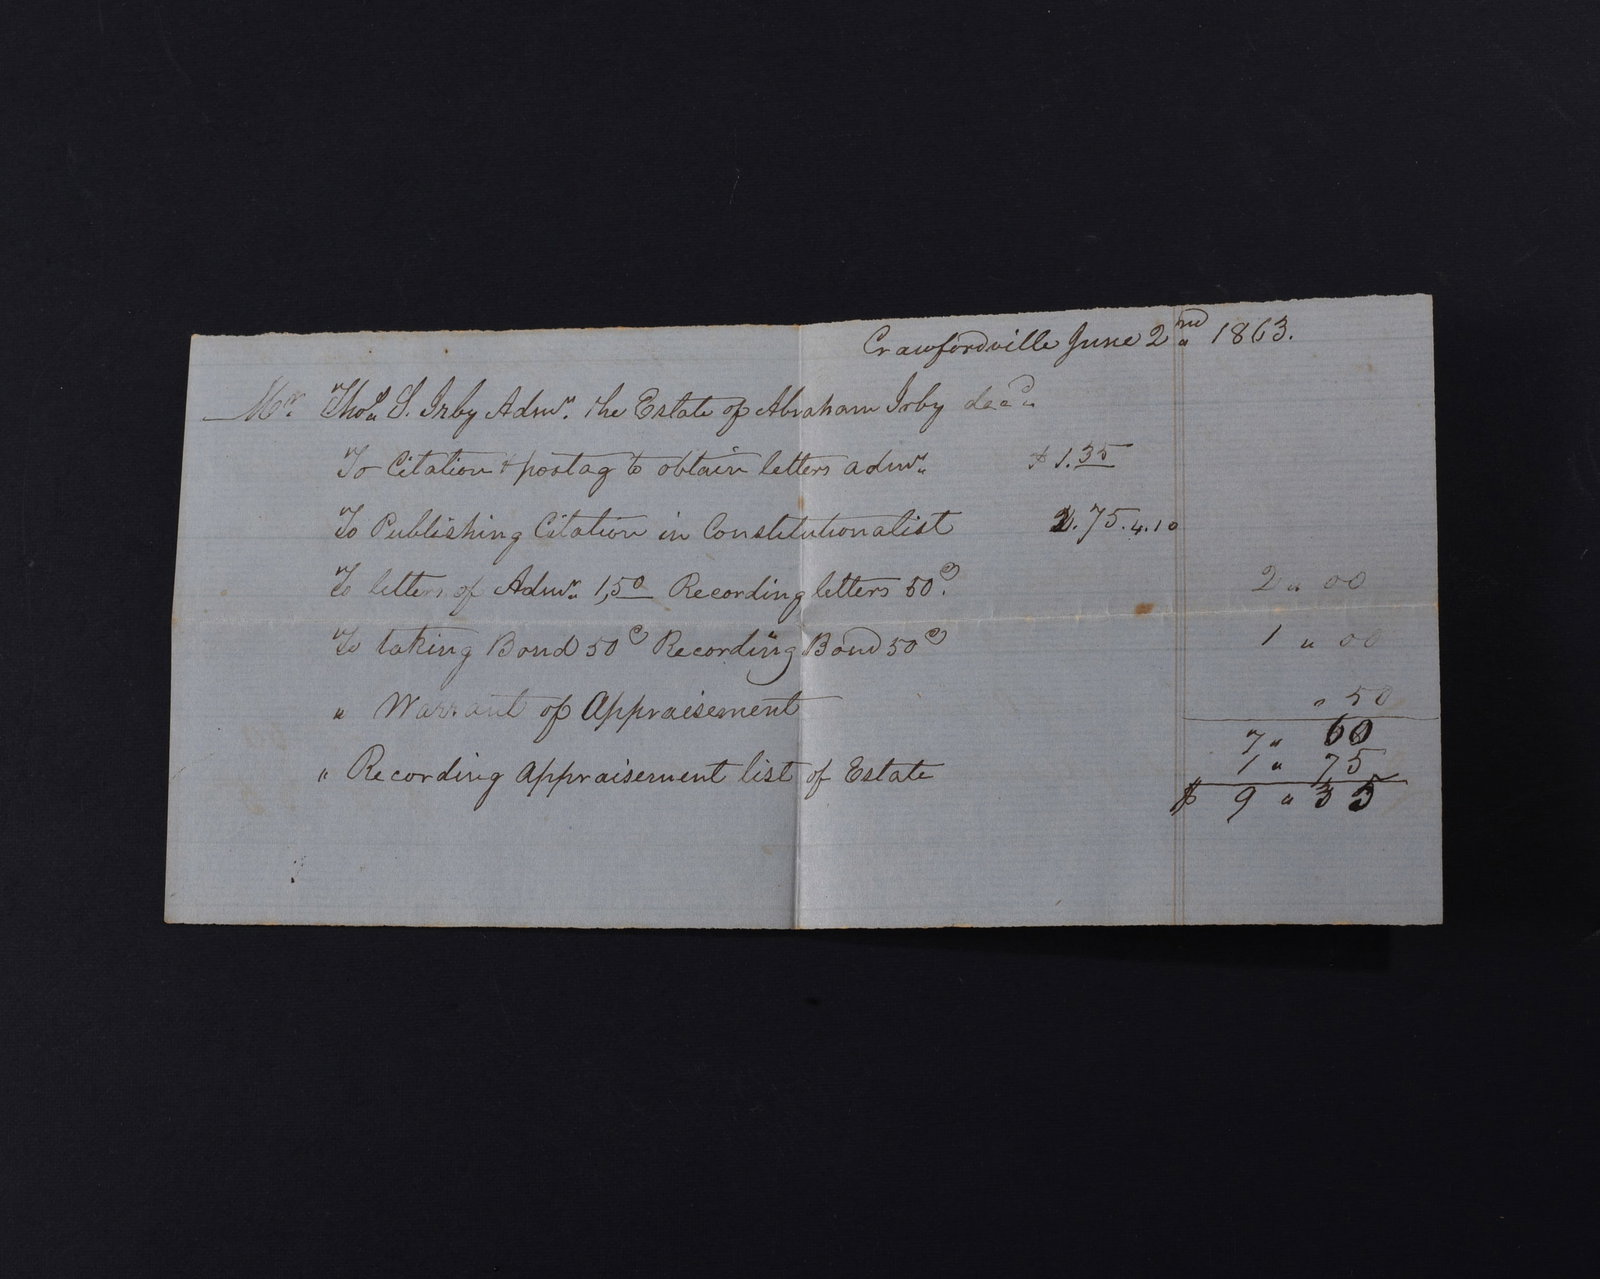 Crawfordville June 2nd 1863.
Mr. Thos. S. Irby Admr. the Estate of Abraham Irby decd.
To Citation & postag to obtain letters admr. $1.35
To Publishing Citation in Constitutionalist 2.75. 4.10
To letters of Admr. 1,50 Recording letters 50c. 2 " 00
To taking Bond 50c Recording Bond 50c 1 " 00
" Warrant of Appraisement " 50
7 " 60
" Recording Appraisement list of Estate 1 " 75
$ 9 " 35